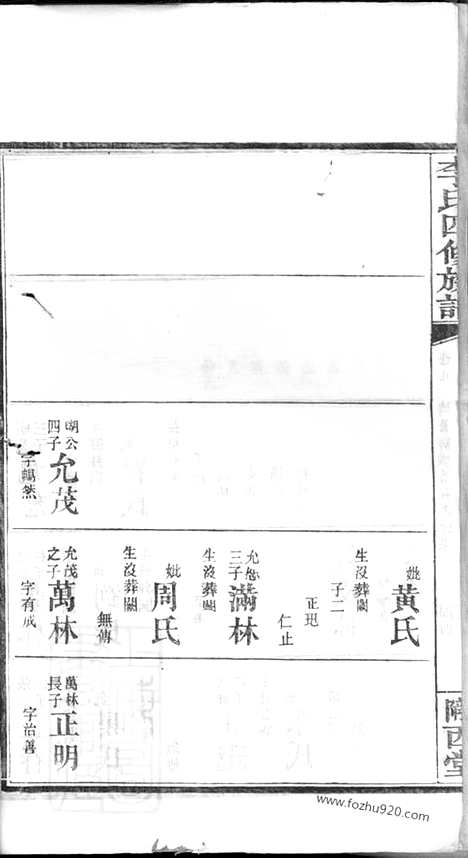 李氏四修族譜
隴西堂
胡公
四子
允茂
字暢然
妣
黃氏
生沒葬闕
子二
正玘
仁止
三子
滿林
生沒葬闕
妣
周氏
生沒葬闕
無傳
允茂
之子
萬林
字有成
萬林
長子
正明
字治善
www.fozhu920.com